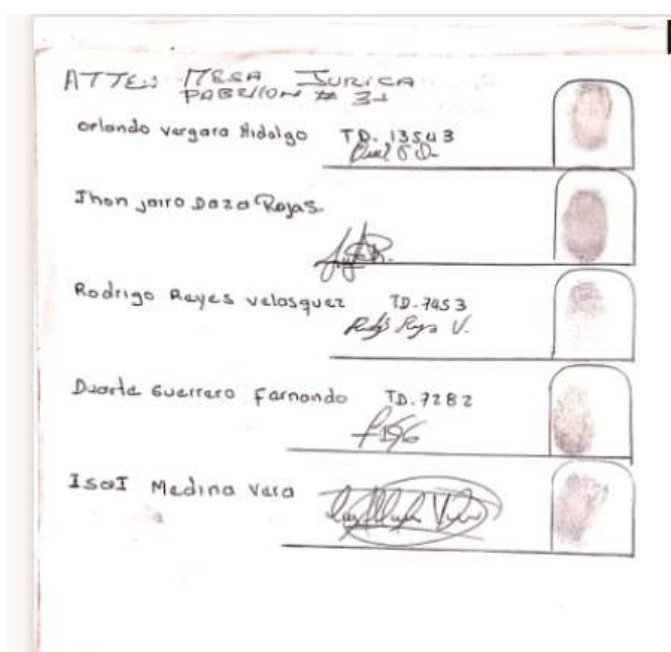 ATTE: MESA JURICA
PABELLON # 3
Orlando vergara Hidalgo TD. 13543
Jhon jairo Daza Rojas.
Rodrigo Reyes velasquez TD-7453
Duarte Guerrero Fernando TD. 7282
IsaI Medina Vera